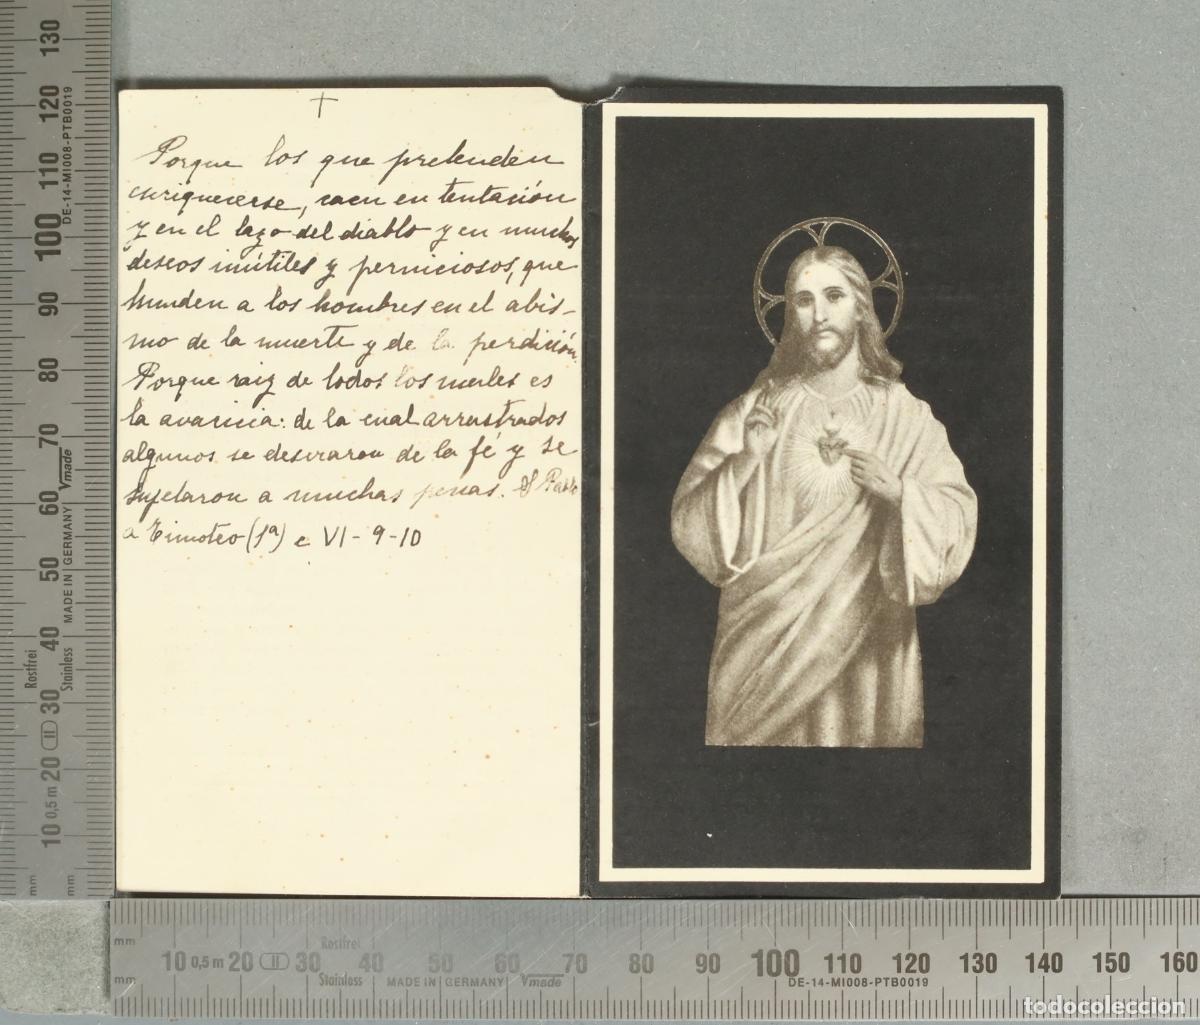 Porque los que pretenden
enriquecerse, caen en tentación
y en el lazo del diablo y en muchos
deseos inútiles y perniciosos, que
hunden a los hombres en el abis-
mo de la muerte y de la perdición.
Porque raiz de todos los males es
la avaricia: de la cual arrastrados
algunos se desviaron de la fé y se
sujetaron a muchas penas. S Pablo
a Timoteo (1ª) c VI - 9 - 10
130
120
110
100
90
80
70
60
50
40
30
20
10
0,5 m
mm
mm
DE-14-MI008-PTB0019
Vmade
MADE IN GERMANY
Rostfrei
Stainless
mm
mm
10 0,5 m 20 30 40 50 60 70 80 90 100 110 120 130 140 150 160
Rostfrei
Stainless MADE IN GERMANY Vmade
DE-14-MI008-PTB0019
todocoleccion